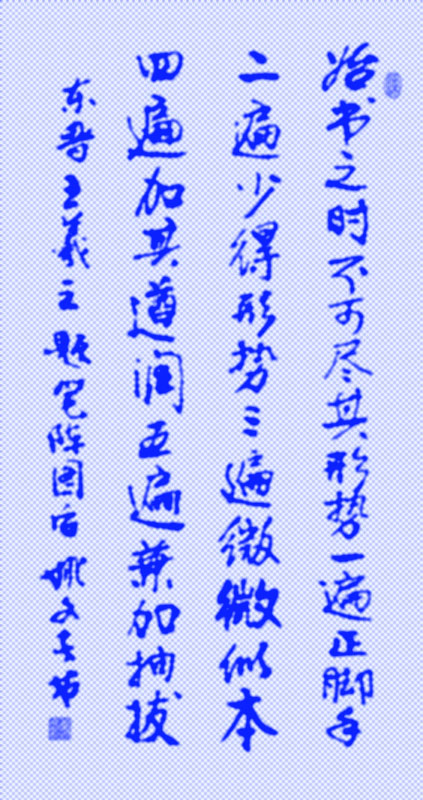 始书之时不可尽其形势一遍正脚手
二遍少得形势三遍微微似本
四遍加其遒润五遍兼加抽拔
东晋王羲之题笔阵图后 姚文